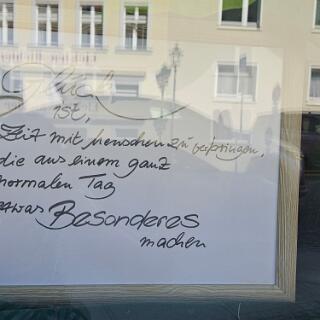 Glück
ist,
Zeit mit Menschen zu verbringen,
die aus einem ganz
normalen Tag
etwas Besonderes
machen